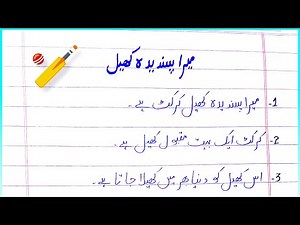 میرا پسندیدہ کھیل
1- میرا پسندیدہ کھیل کرکٹ ہے۔
2- کرکٹ ایک بہت مقبول کھیل ہے۔
3- اس کھیل کو دنیا بھر میں کھیلا جاتا ہے۔